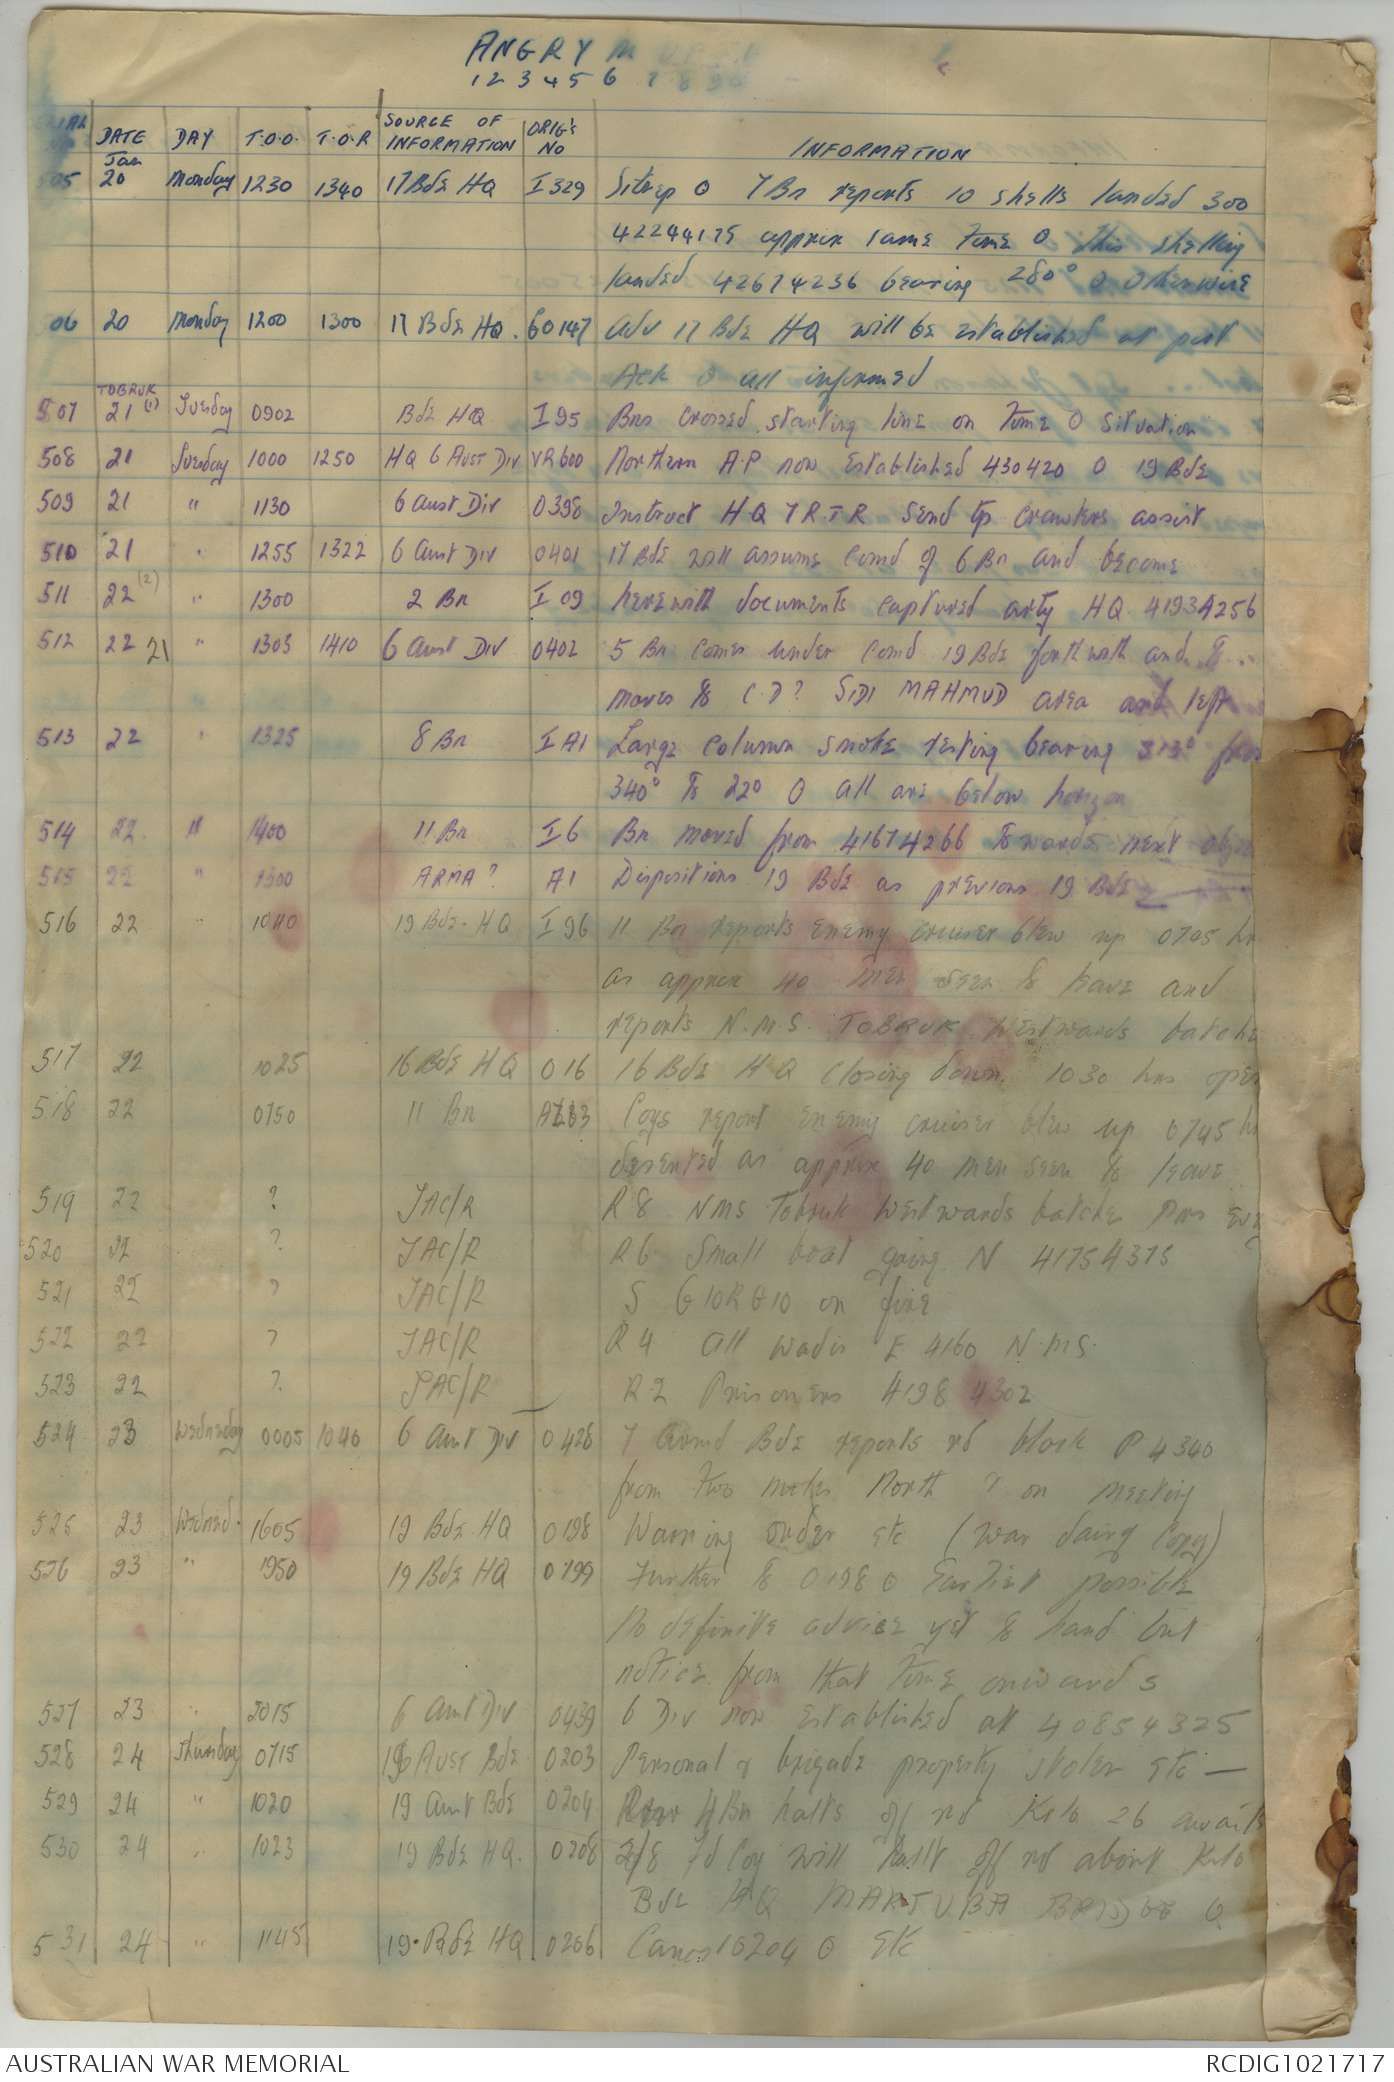 ANGRY M
1 2 3 4 5 6 7 8 9 0
DATE DAY T.O.O. T.O.R SOURCE OF INFORMATION ORIG's No INFORMATION
Jan
505 20 Monday 1230 1340 17 Bde HQ I 329 Sitrep O 7 Bn reports 10 shells landed 300
42244175 approx same time O This shelling
landed 42674236 bearing 280° O Otherwise
06 20 Monday 1200 1300 17 Bde HQ. 60147 Adv 17 Bde HQ will be established at post
Ack O all informed
TOBRUK
507 21 (1) Tuesday 0902 Bde HQ I 95 Bns crossed starting line on time O Situation
508 21 Tuesday 1000 1250 HQ 6 Aust Div VR600 Northern A.P now established 430420 O 19 Bde
509 21 " 1130 6 Aust Div 0398 Instruct HQ 7 R.T.R send tp crawlers assist
510 21 " 1255 1322 6 Aust Div 0401 17 Bde will assume comd of 6 Bn and become
511 22 (2) " 1300 2 Bn I 09 herewith documents captured arty HQ 41934256
512 22 21 " 1303 1410 6 Aust Div 0402 5 Bn comes under comd 19 Bde forthwith and to
moves to C.D? SIDI MAHMUD area and left
513 22 " 1325 8 Bn I A1 Large column smoke resting bearing 313° from
340° to 220 O All are below horizon
514 22 " 1400 11 Bn I 6 Bn moved from 41674266 towards next
515 22 " 1300 ARMA? A1 Dispositions 19 Bde as previous 19 Bde
516 22 " 1040 19 Bde HQ I 96 11 Bn reports enemy cruiser blew up 0705 hr
as approx 40 men seen to leave and
reports N.M.S. TOBRUK. Westwards
517 22 1025 16 Bde HQ O 16 16 Bde HQ closing down. 1030 hrs open
518 22 0750 11 Bn Coys report enemy cruiser blew up 0745 hr
deserted as approx 40 men seen to leave
519 22 ? TAC/R R 8 NMS Tobruk Westwards
520 22 ? TAC/R R 6 Small boat going N 41754375
521 22 ? TAC/R S G10RG10 on fire
522 22 ? TAC/R R 4 All wadis E 4160 N.M.S.
523 22 ? TAC/R R 2 Prisoners 4198 4302
524 23 Wednesday 0005 1040 6 Aust Div 0428 7 Armd Bde reports rd block P 4340
from two miles North ? on meeting
525 23 Wednesd. 1605 19 Bde HQ 0198 Warning order etc (war dairy Copy)
526 23 " 1950 19 Bde HQ 0199 Further to 0198 O Earliest possible
No definite advice yet to hand but
notice from that time onwards
527 23 " 2015 6 Aust Div 0439 6 Div now established at 40854325
528 24 Thursday 0715 19 Aust Bde 0203 Personal & brigade property stolen etc —
529 24 " 1020 19 Aust Bde 0204 4 Bn halts off rd Kilo 26 await
530 24 " 1023 19 Bde HQ. 0208 2/8 Fd Coy will halt off rd about Kilo
Bde HQ MARTUBA BRIDGE O
531 24 " 1145 19 Bde HQ 0206 Cancel 0204 O etc
AUSTRALIAN WAR MEMORIAL RCDIG1021717